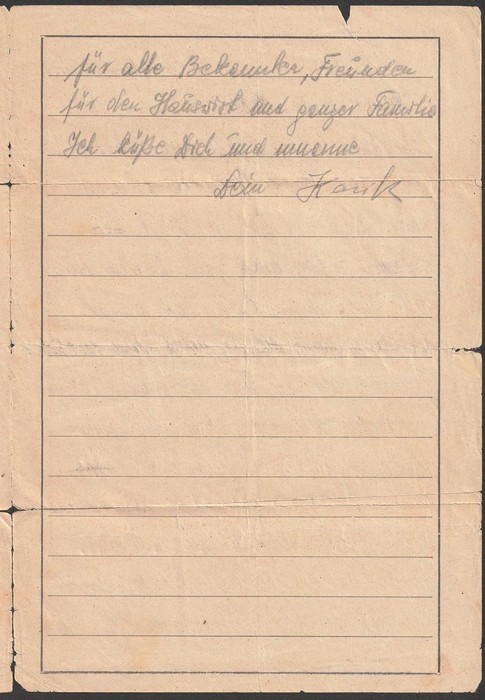 für alle Bekannter, Freunden
für den Hauswirt und ganzer Familie
Ich küße Dich und
Dein